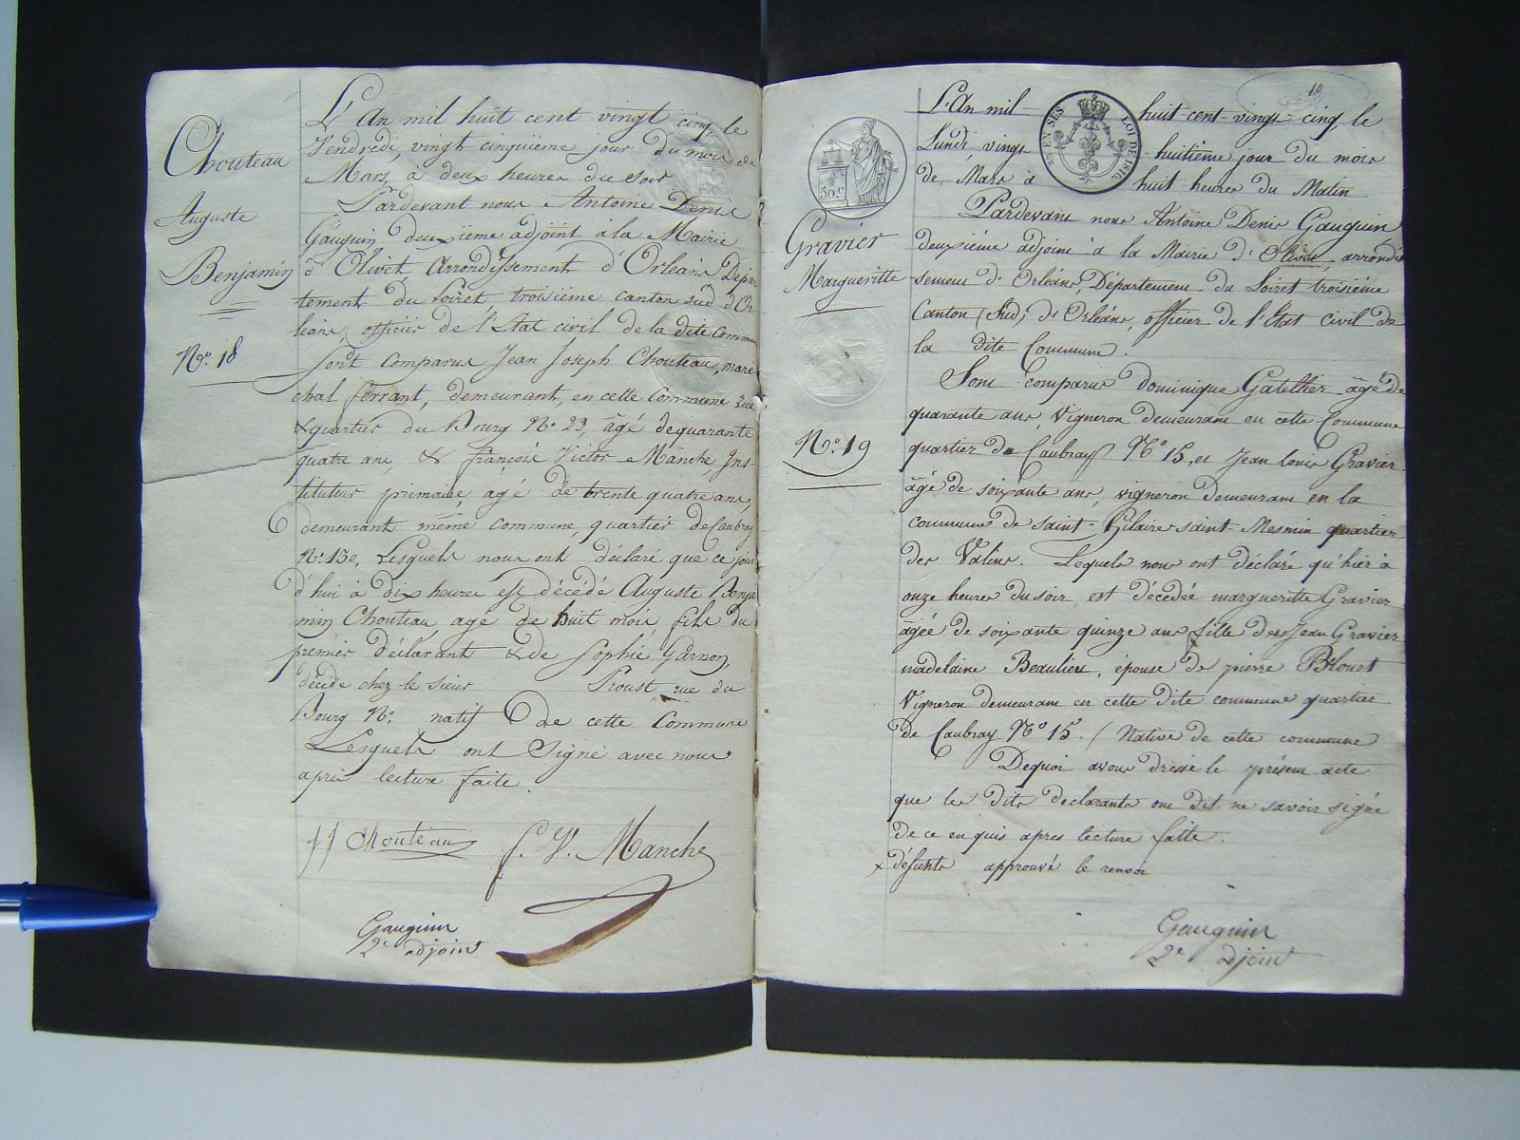 Chouteau
Auguste
Benjamin
No. 18
L'An mil huit cent vingt cinq, le
Vendredi, vingt cinquième jour du mois de
Mars, à deux heures du soir
Pardevant nous Antoine Denis
Gauguin deuxième adjoint à la Mairie
d'Olivet Arrondissement d'Orléans Dépar
tement du Loiret troisième canton sud d'Or
léans, officier de l'Etat civil de la dite Commune
sont comparus Jean Joseph Chouteau, maré
chal ferrant, demeurant, en cette Commune rue
& quartier du Bourg No. 23, âgé de quarante
quatre ans, & françois Victor Manche Ins-
tituteur primaire, agé de trente quatre ans,
demeurant même commune, quartier de Caubray
No. 130, Lesquels nous ont déclaré que ce jour
d'hui à dix heures est décédé Auguste Benja
min Chouteau agé de huit mois fils du
premier déclarant & de Sophie Garnon,
décédé chez le sieur Proust rue du
Bourg No. natif de cette Commune
Lesquels ont Signé avec nous
après lecture faite.
J J Chouteau f. V. Manche
Gauguin
2e adjoint
19
ET EN SES LOI DU TIM
50 c
Gravier
Margueritte
No. 19
L'An mil huit cent vingt cinq le
Lundi, vingt huitième jour du mois
de Mars à huit heures du Matin
Pardevant nous Antoine Denis Gauguin
deuxième adjoint à la Mairie d'Olivet, arrondis
sement d'Orléans, Département du Loiret troisième
Canton (Sud) d'Orléans, officier de l'Etat civil de
la dite Commune.
Sont comparus dominique Gatellier âgé de
quarante ans, Vigneron demeurant en cette Commune
quartier de Caubray No 15, et Jean Louis Gravier
âgé de soixante ans, vigneron demeurant en la
commune de saint-Hilaire saint-Mesmin quartier
des Valins. Lequels nous ont déclaré qu'hier à
onze heures du soir, est décédée margueritte Gravier
âgée de soixante quinze ans fille des x Jean Gravier
madelaine Beaulieu, épouse de pierre Blouet
Vigneron demeurant en cette dite commune quartier
de Caubray No 15. / Native de cette commune
Dequoi avons dressé le présent acte
que les dits declarants ont dit ne savoir signé
de ce enquis apres lecture faite.
x défunts approuvé le renvoi
Gauguin
2e adjoint